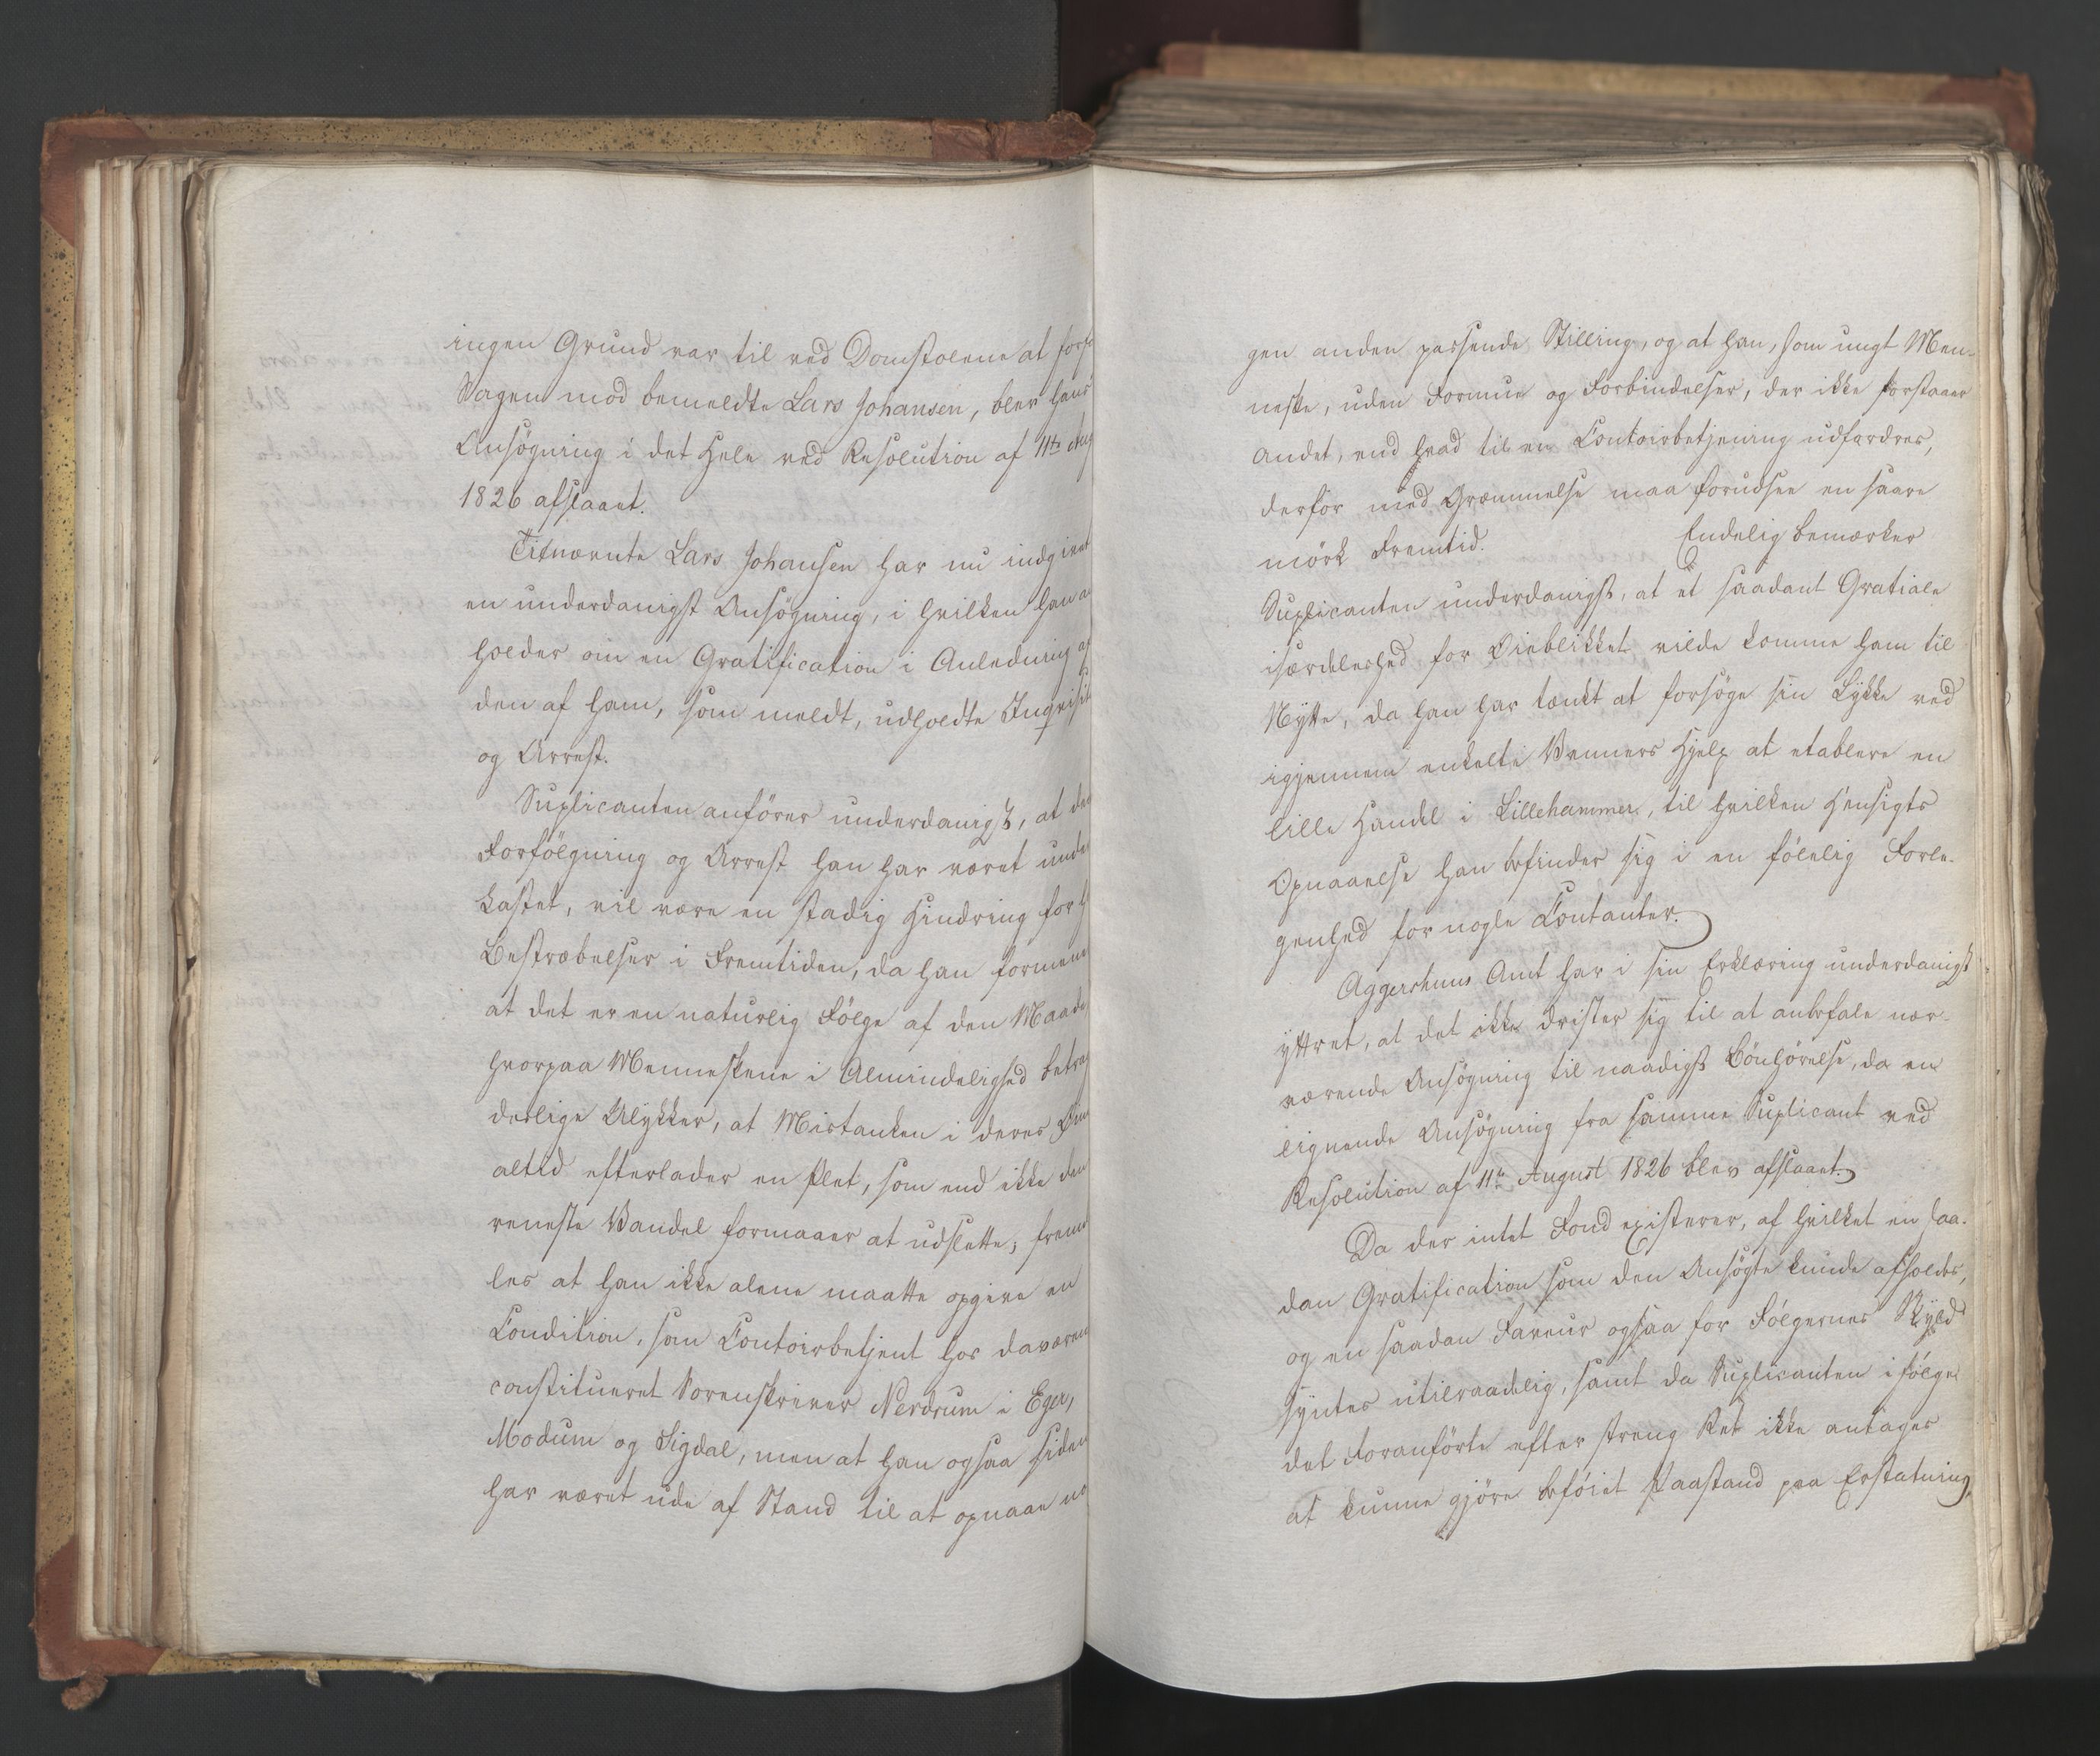 ingen Grund var til ved Domstolene at forf
Sagen mod bemeldte Lars Johansen, blev hans
Ansögning i det Hele ved Resolution af 11te Aug
1826 afslaaet.
Titnævnte Lars Johansen har nu indgivet
en underdanigst Ansögning, i hvilken han a
holder om en Gratification i Anledning af
den af ham, som meldt, udholdte Inqvisit
og Arrest.
Suplicanten anförer underdanigst, at den
Forfölgning og Arrest han har været under
kastet, vil være en stadig Hindring for h
Bestræbelser i Fremtiden, da han formene
at det er en naturlig Fölge af den Maade
hvorpaa Menneskene i Almindelighed betrag
deslige Ulykker, at Mistanken i deres Öine
altid efterlader en Plet, som end ikke den
reneste Vandel formaaer at udslette; frem
les at han ikke alene maatte opgive en
Condition, som Contoirbetjent hos daværen
constitueret Sorenskriver Nerdrum i Eger,
Modum og Sigdal, men at han ogsaa siden
har været ude af Stand til at opnaae no
gen anden passende Stilling, og at han, som ungt Men-
neske, uden Formue og Forbindelser, der ikke forstaaer
andet, end hvad til en Contoirbetjening udfordres,
derfor med Græmmelse maa forudsee en saare
mörk Fremtid. Endelig bemærker
Suplicanten underdanigst, at et saadant Gratiale
isærdeleshed for Öieblikket vilde komme ham til
Nytte, da han har tænkt at forsöge sin Lykke ved
igjennem enkelte Venners Hjelp at etablere en
lille Handel i Lillehammer, til hvilken Hensigts
Opnaaelse han befinder sig i en fölelig Forle-
genhed for nogle Contanter.
Aggershuus Amt har i sin Erklæring underdanigst
yttret, at det ikke drister sig til at anbefale nær-
værende Ansögning til naadigst Bönhörelse, da en
lignende Ansögning fra samme Suplicant ved
Resolution af 11te August 1826 blev afslaaet.
Da der intet Fond existerer, af hvilket en saa-
dan Gratification som den Ansögte kunde afholdes,
og en saadan Faveur ogsaa for Fölgernes Skyld
syntes utilraadelig, samt da Suplicanten i fölge
det Foranförte efter streng Ret ikke antages
at kunne gjöre beföiet Paastand paa Erstatning,